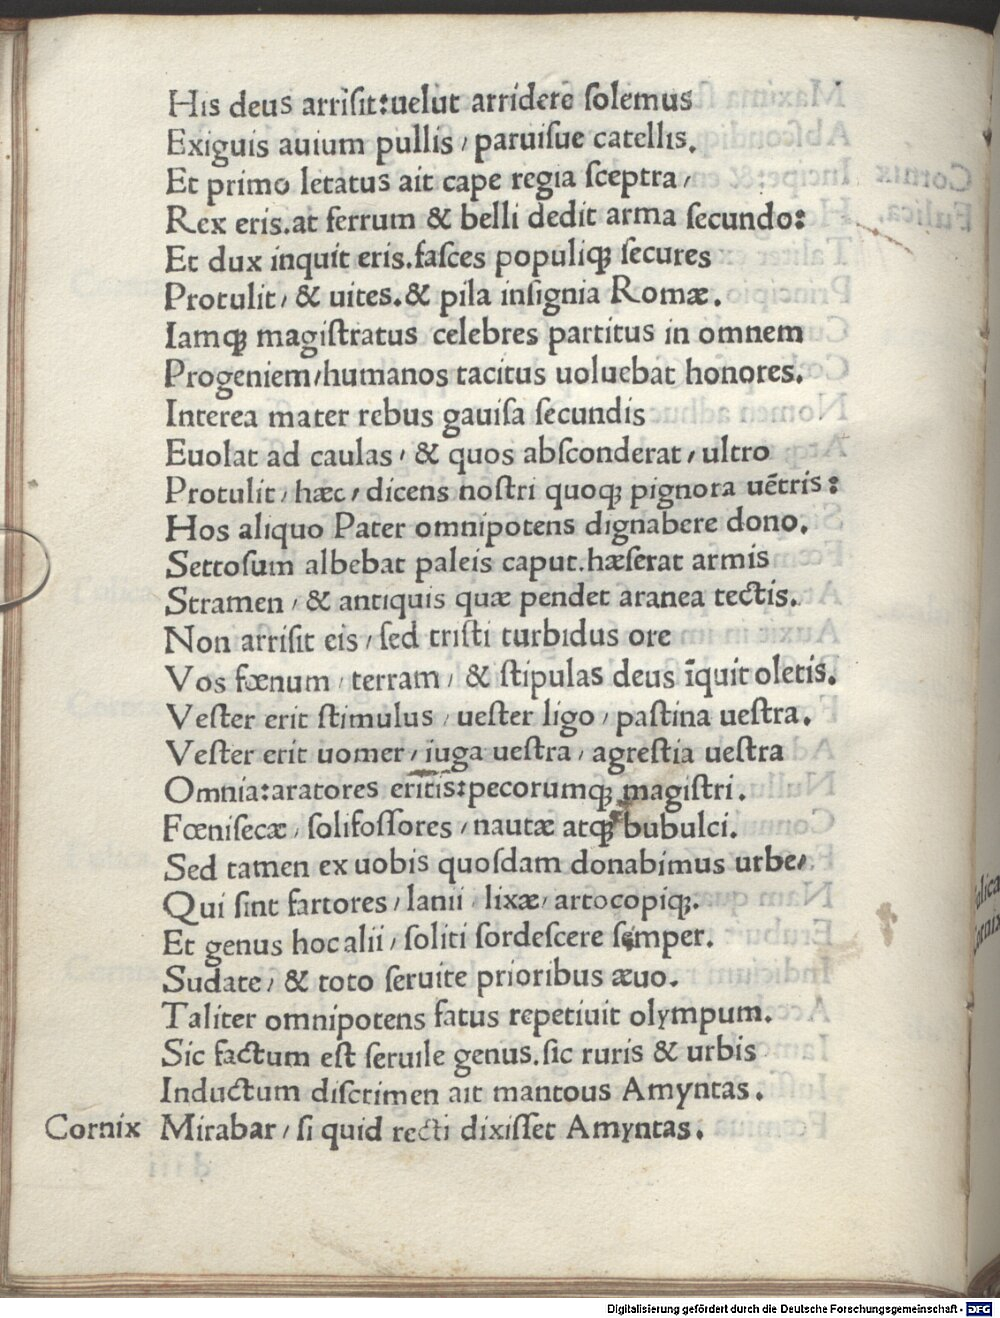 His deus arrisit:uelut arridere ſolemus
Exiguis auium pullis / paruiſue catellis.
Et primo letatus ait cape regia ſceptra /
Rex eris.at ferrum & belli dedit arma ſecundo:
Et dux inquit eris.faſces populiqꝫ ſecures
Protulit / & uites.& pila inſignia Romæ.
Iamqꝫ magiſtratus celebres partitus in omnem
Progeniem/humanos tacitus uoluebat honores.
Interea mater rebus gauiſa ſecundis
Euolat ad caulas / & quos abſconderat / ultro
Protulit / hæc / dicens noſtri quoqꝫ pignora uẽtris:
Hos aliquo Pater omnipotens dignabere dono.
Settoſum albebat paleis caput.hæſerat armis
Stramen / & antiquis quæ pendet aranea tectis.
Non arriſit eis / ſed triſti turbidus ore
Vos fœnum / terram / & ſtipulas deus ĩquit oletis.
Veſter erit ſtimulus / ueſter ligo / paſtina ueſtra.
Veſter erit uomer / iuga ueſtra / agreſtia ueſtra
Omnia:aratores eritis:pecorumqꝫ magiſtri.
Fœniſecæ / ſolifoſſores / nautæ atqꝫ bubulci.
Sed tamen ex uobis quoſdam donabimus urbe/
Qui ſint fartores / lanii / lixæ / artocopiqꝫ.
Et genus hoc alii / ſoliti ſordeſcere ſemper.
Sudate / & toto ſeruite prioribus æuo.
Taliter omnipotens fatus repetiuit olympum.
Sic factum eſt ſeruile genus.ſic ruris & urbis
Inductum diſcrimen ait mantous Amyntas.
Cornix Mirabar / ſi quid recti dixiſſet Amyntas.
Digitalisierung gefördert durch die Deutsche Forschungsgemeinschaft - DFG